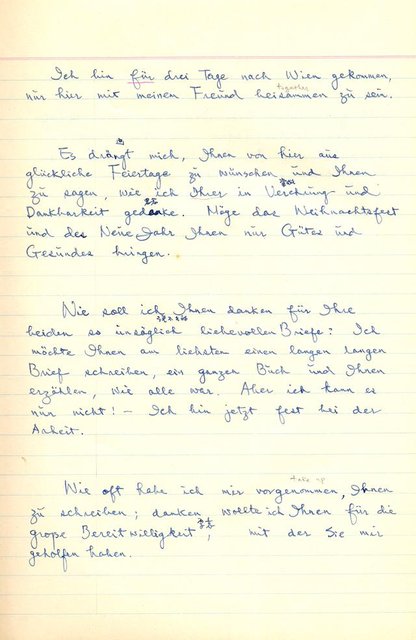 Ich bin für drei Tage nach Wien gekommen,
together
nur hier mit meinen Freund beisammen zu sein.
Es drängt mich, Ihnen von hier aus
glückliche Feiertage zu wünschen und Ihnen
zu sagen, wie ich Ihrer in Verehrung und
Dankbarkeit gedenke. Möge das Weihnachtsfest
und das Neue Jahr Ihnen nur Gutes und
Gesundes bringen.
Wie soll ich Ihnen danken für Ihre
beiden so unsäglich liebevollen Briefe: Ich
möchte Ihnen am liebsten einen langen langen
Brief schreiben, ein ganzes Buch und Ihnen
erzählen, wie alle war. Aber ich kann es
nur nicht! – Ich bin jetzt fest bei der
Arbeit.
take up
Wie oft habe ich mir vorgenommen, Ihnen
zu schreiben; danken wollte ich Ihnen für die
große Bereitwilligkeit, mit der Sie mir
geholfen haben.